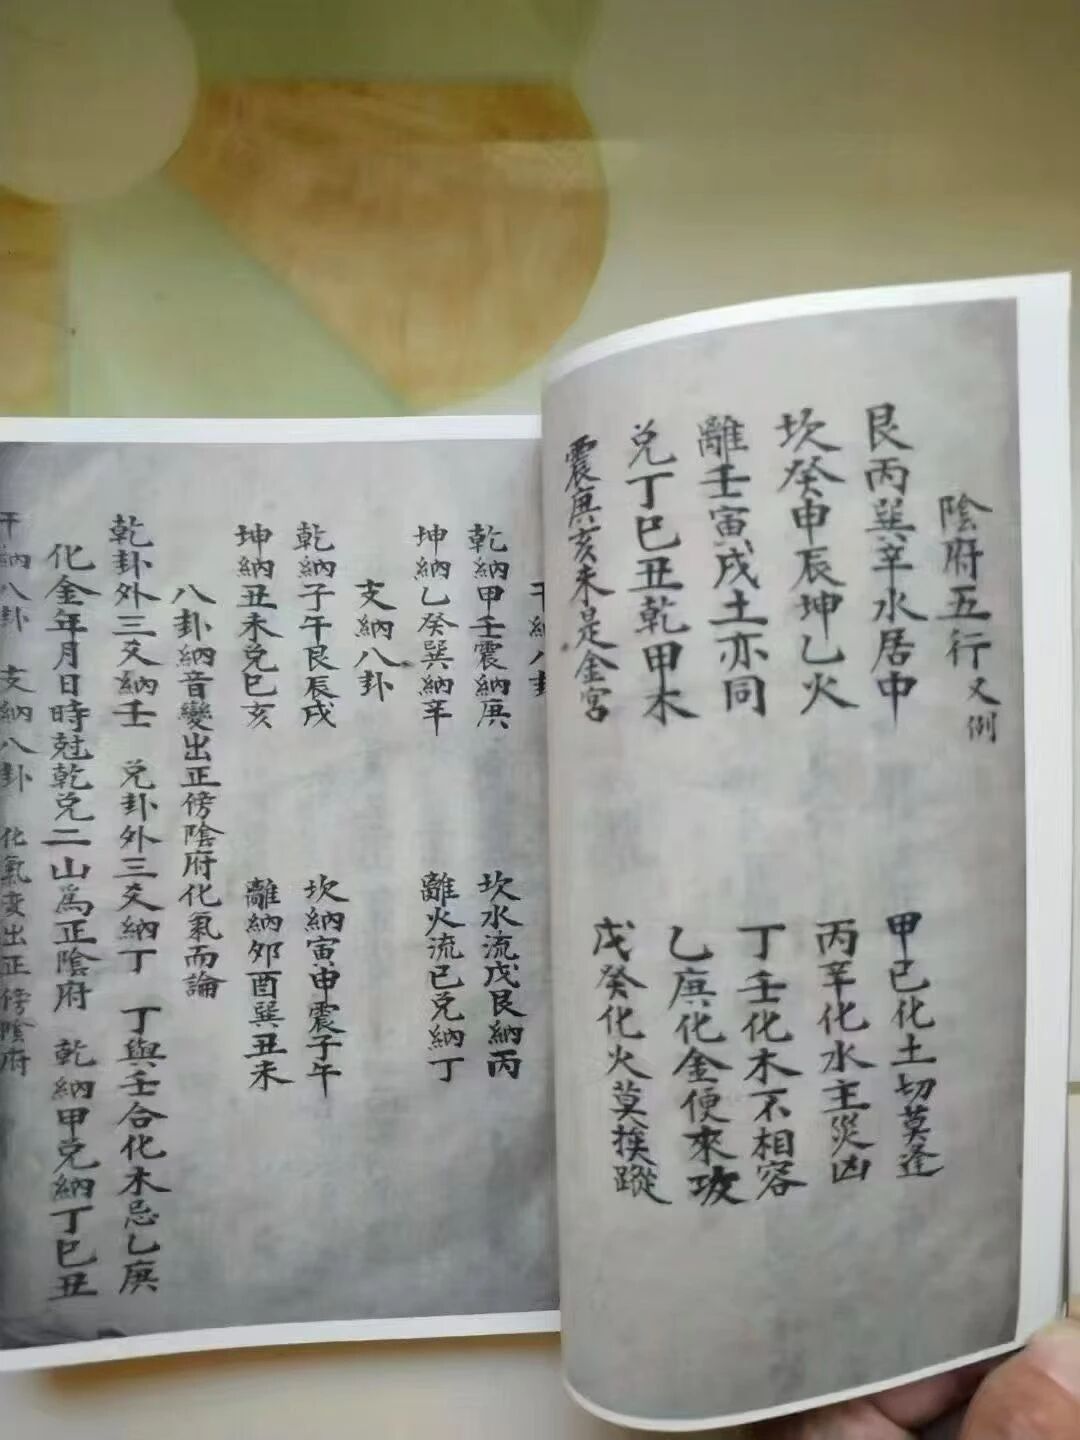 陰府五行又例
艮丙巽辛水居中
甲已化土切莫逢
坎癸申辰坤乙火
丙辛化水主災凶
離壬寅戌土亦同
丁壬化木不相容
兌丁巳丑乾甲木
乙庚化金便來攻
震庚亥未是金宮
戊癸化火莫挨蹤
干納八卦
乾納甲壬震納庚
坎水流戊艮納丙
坤納乙癸巽納辛
離火流已兌納丁
支納八卦
乾納子午艮辰戌
坎納寅申震子午
坤納丑未兌巳亥
離納卯酉巽丑未
八卦納音變出正傍陰府化氣而論
乾卦外三爻納壬 兌卦外三爻納丁 丁與壬合化木忌乙庚
化金年月日時尅乾兌二山為正陰府 乾納甲兌納丁巳丑
干納八卦 支納八卦 化氣变出正傍陰府